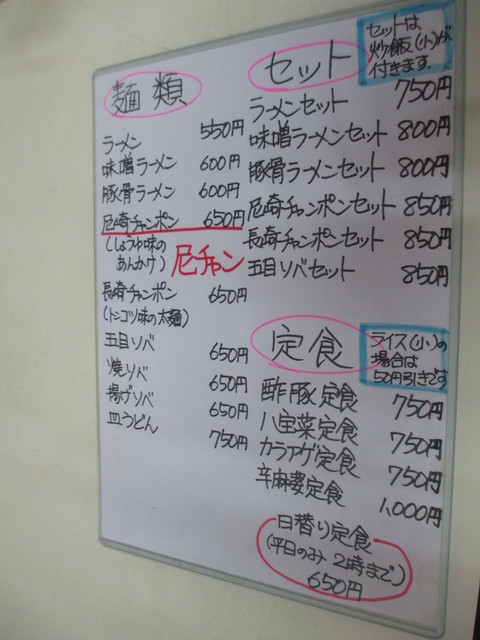 麺類
ラーメン 550円
味噌ラーメン 600円
豚骨ラーメン 600円
尼崎チャンポン 650円
(しょうゆ味の
あんかけ)
尼チャン
長崎チャンポン 650円
(トンコツ味の太麺)
五目ソバ 650円
焼ソバ 650円
揚げソバ 650円
皿うどん 750円
セット
セットは
炒飯(小)が
付きます。
ラーメンセット 750円
味噌ラーメンセット 800円
豚骨ラーメンセット 800円
尼崎チャンポンセット 850円
長崎チャンポンセット 850円
五目ソバセット 850円
定食
ライス(小)の
場合は
50円引きです
酢豚定食 750円
八宝菜定食 750円
カラアゲ定食 750円
辛麻婆定食 1,000円
日替り定食
(平日のみ 2時まで)
650円